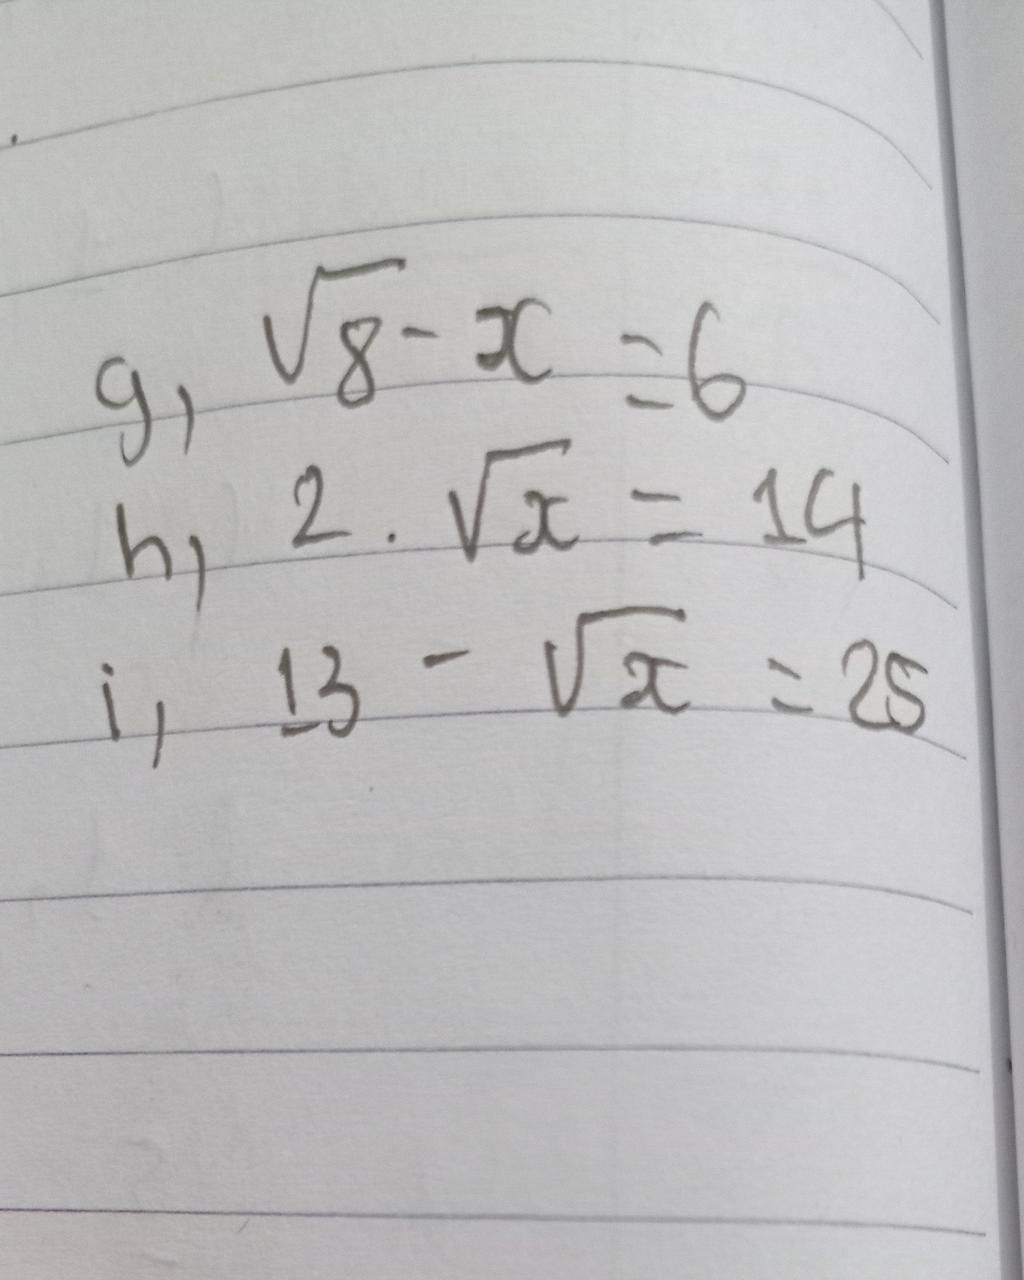 g, √8 - x = 6
h, 2 . √x = 14
i, 13 - √x = 25